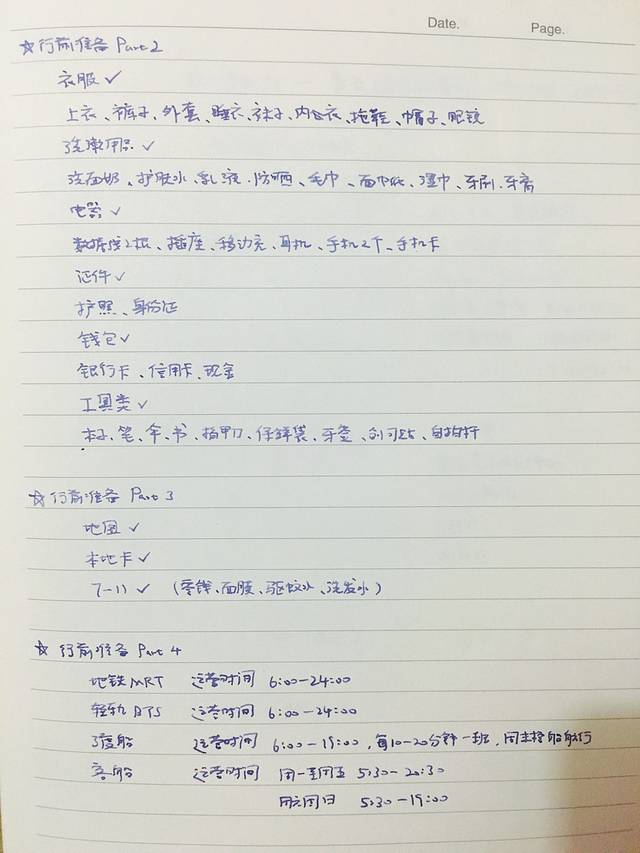 Date. Page.
☆行前准备 Part 2
衣服 ✓
上衣、裤子、外套、睡衣、袜子、内衣、拖鞋、帽子、眼镜
洗漱用品 ✓
洗面奶、护肤水、乳液、防晒、毛巾、面巾纸、湿巾、牙刷、牙膏
电器 ✓
数据线2根、插座、移动充、耳机、手机2个、手机卡
证件 ✓
护照、身份证
钱包 ✓
银行卡、信用卡、现金
工具类 ✓
本子、笔、伞、书、指甲刀、保鲜袋、牙签、创可贴、自拍杆
☆行前准备 Part 3
地图 ✓
本地卡 ✓
7-11 ✓ (零钱、面膜、驱蚊水、洗发水)
☆ 行前准备 Part 4
地铁MRT 运营时间 6:00-24:00
轻轨BTS 运营时间 6:00-24:00
渡船 运营时间 6:00-19:00,每10-20分钟一班,
客船 运营时间 周一至周五 5:30-20:30
周六周日 5:30-19:00